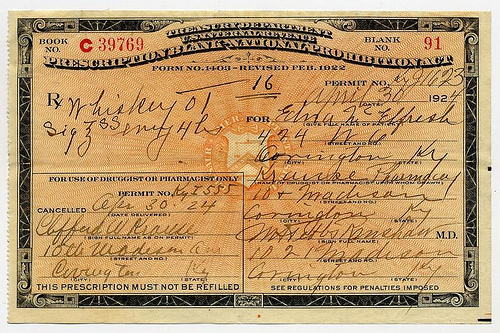 TREASURY DEPARTMENT
U.S. INTERNAL REVENUE
BOOK NO. C39769
BLANK NO. 91
PRESCRIPTION BLANK-NATIONAL PROHIBITION ACT
FORM NO. 1403-REVISED FEB. 1922
16
PERMIT NO.
Rx Whiskey O1
April 30 1924
(DATE)
Sig
FOR Elma McElfresh
(GIVE FULL NAME OF PATIENT)
424 W. 6
(STREET AND NO.)
Covington Ky
(CITY) (STATE)
FOR USE OF DRUGGIST OR PHARMACIST ONLY
Krause Pharmacy
(NAME OF DRUGGIST OR PHARMACIST UPON WHOM DRAWN)
PERMIT NO. Ky I 555
10 + Madison
(STREET AND NO.)
CANCELLED Apr 30-24
(DATE DELIVERED)
Covington Ky
(CITY) (STATE)
Clifford A Krause
(SIGN FULL NAME AS ON PERMIT)
M.D.
(SIGN FULL NAME)
10th Madison Ave
(STREET AND NO.)
Madison
(STREET AND NO.)
Covington Ky
(CITY) (STATE)
Covington Ky
(CITY) (STATE)
THIS PRESCRIPTION MUST NOT BE REFILLED
SEE REGULATIONS FOR PENALTIES IMPOSED